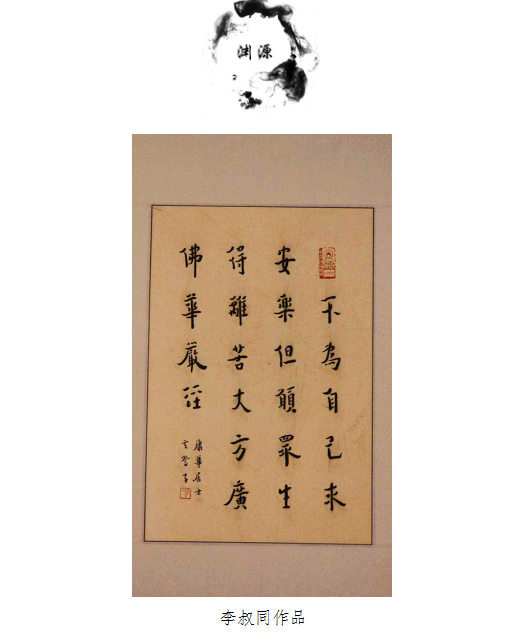 渊源
不為自己求
安樂但願眾生
得離苦大方廣
佛華嚴經
康華居士
李叔同作品